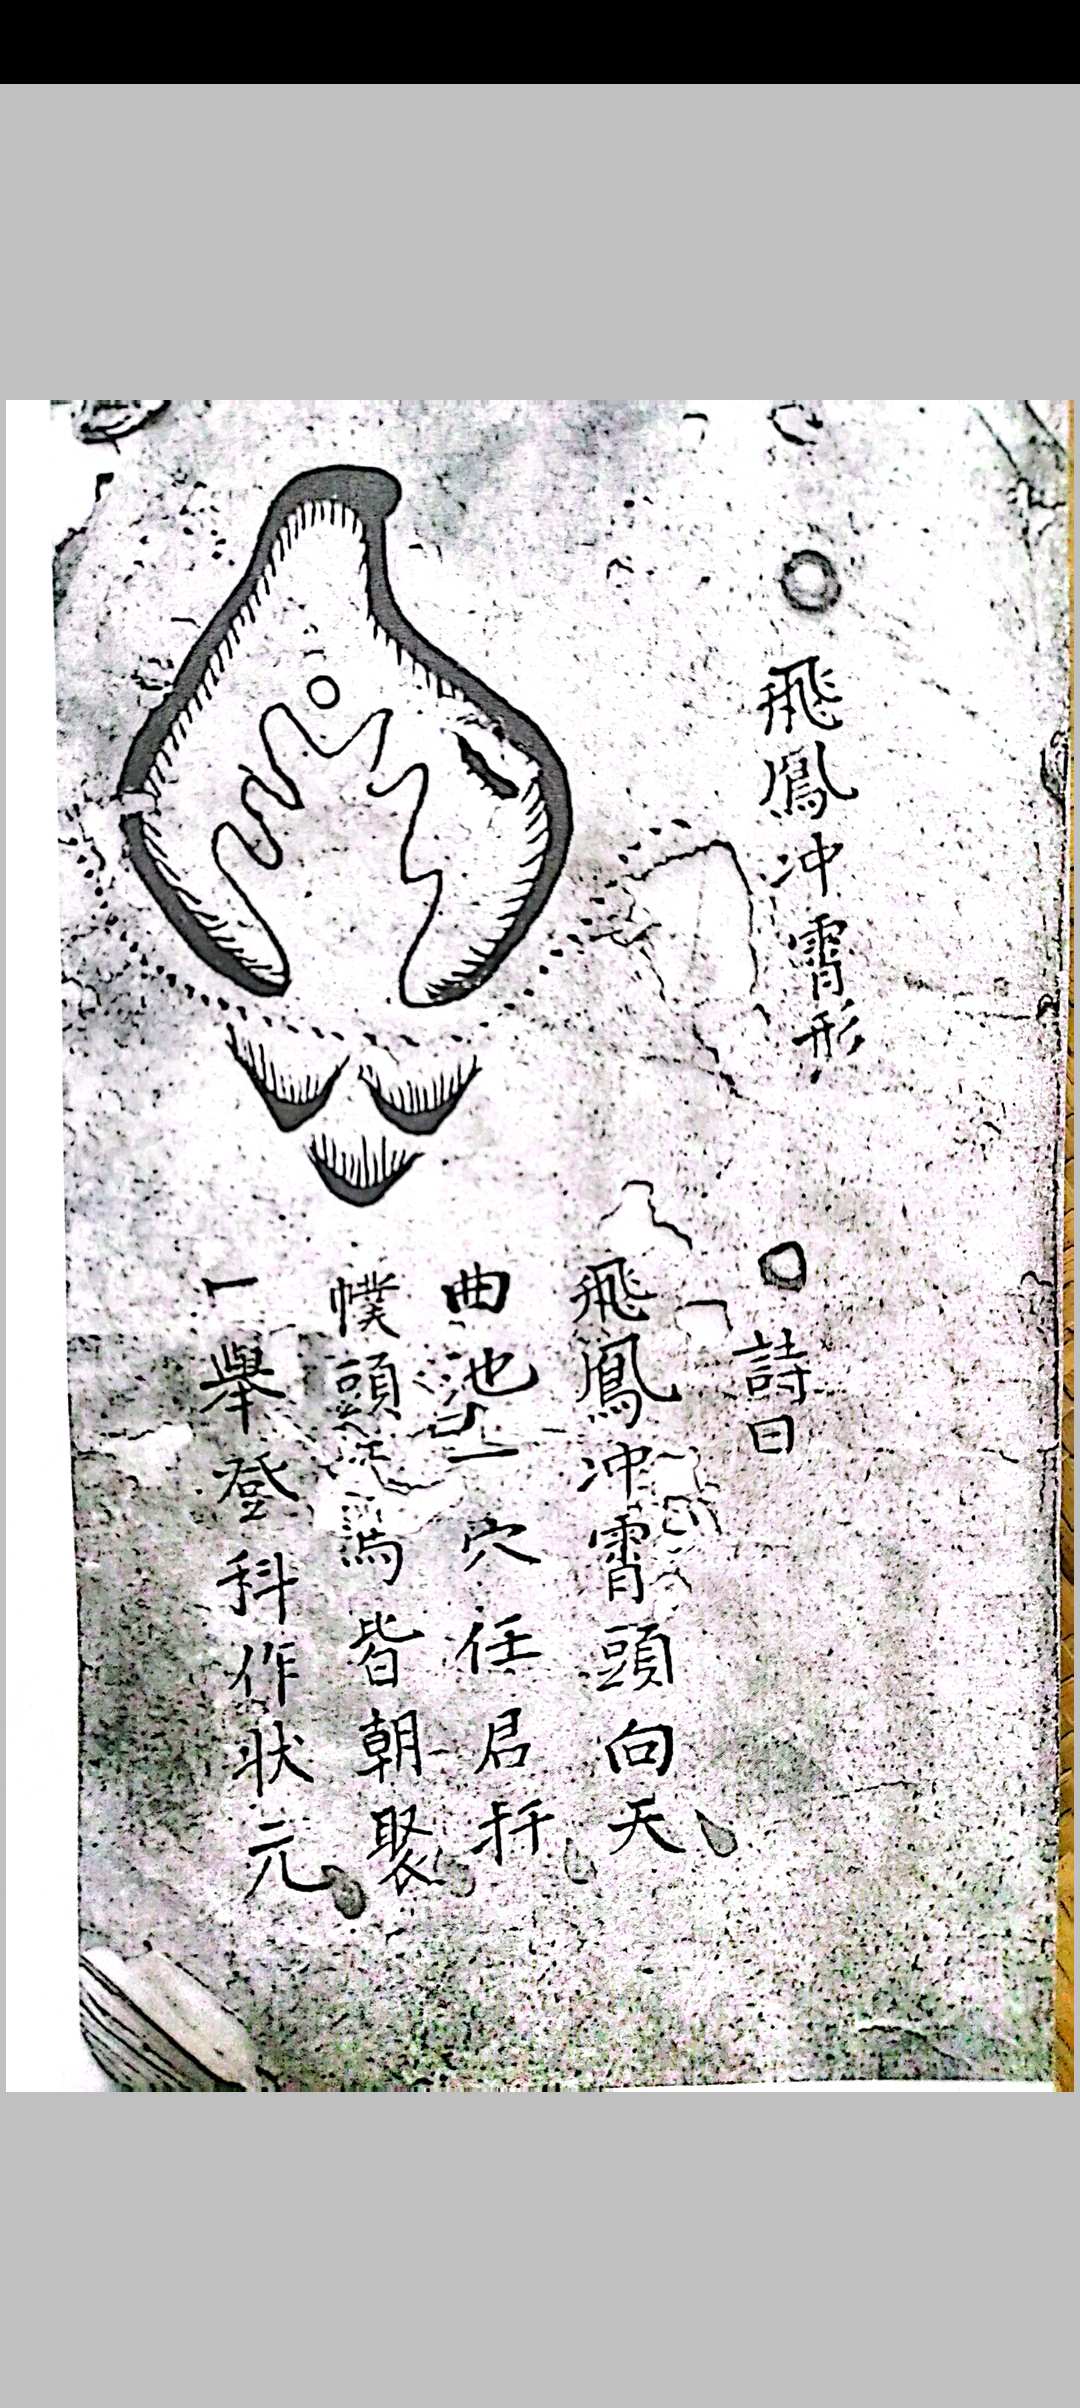 飛鳳冲霄形
詩曰
飛鳳冲霄頭向天
曲池 穴任君扦
幞頭 皆朝聚
一舉登科作狀元